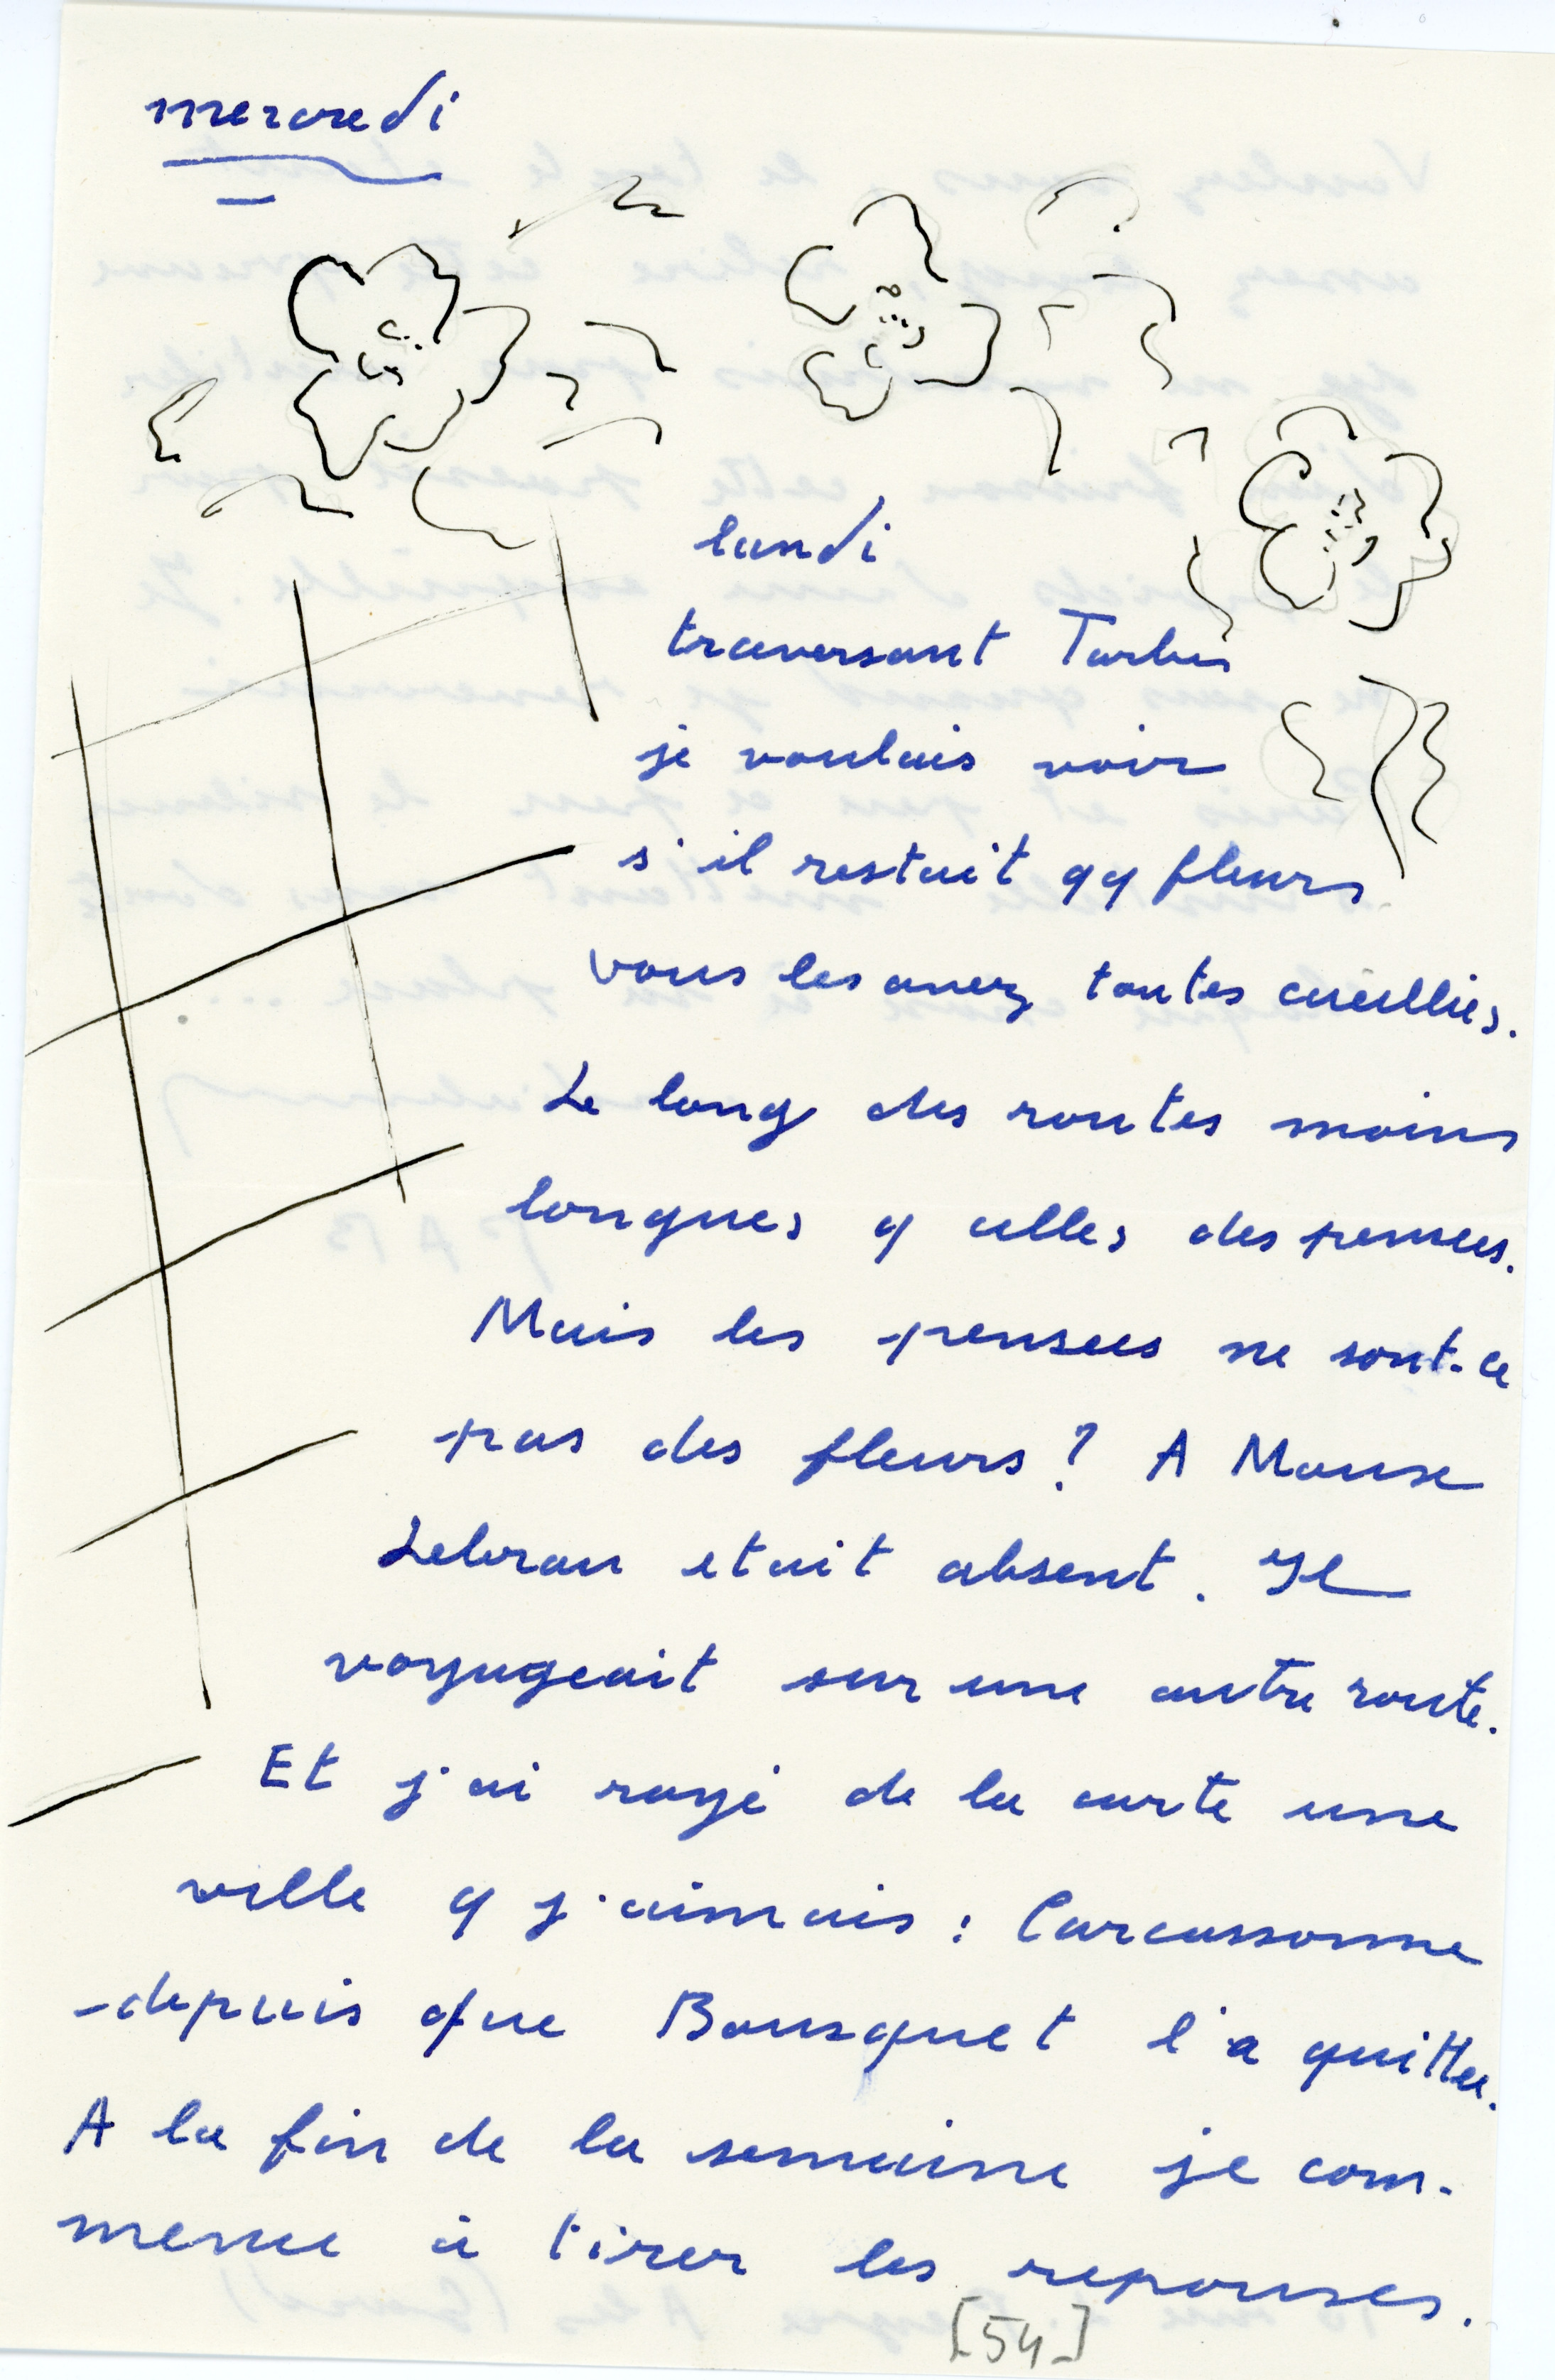 mercredi
lundi
traversant Tarbes
je voulais voir
s'il restait qq fleurs
vous les avez toutes cueillies.
Le long des routes moins
longues q celles des pensees.
Mais les pensees ne sont-ce
pas des fleurs ? A Mouse
était absent. Il
voyageait sur une autre route.
Et j'ai rayé de la carte une
ville q j'aimais : Carcassonne
-depuis que Bousquet l'a quittee.
A la fin de la semaine je com-
mence à tirer les reponses.
[54]